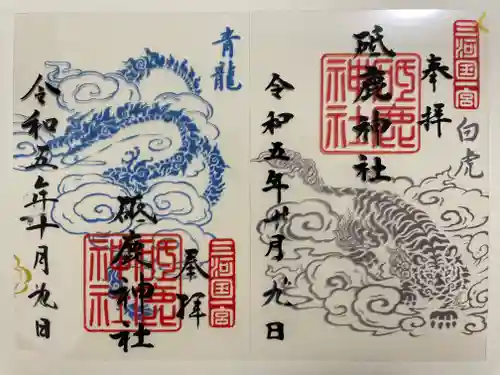 三河国一宮
奉拝
白虎
砥鹿神社
砥鹿神社
令和五年十月九日
青龍
三河国一宮
奉拝
砥鹿神社
砥鹿神社
令和五年十月九日